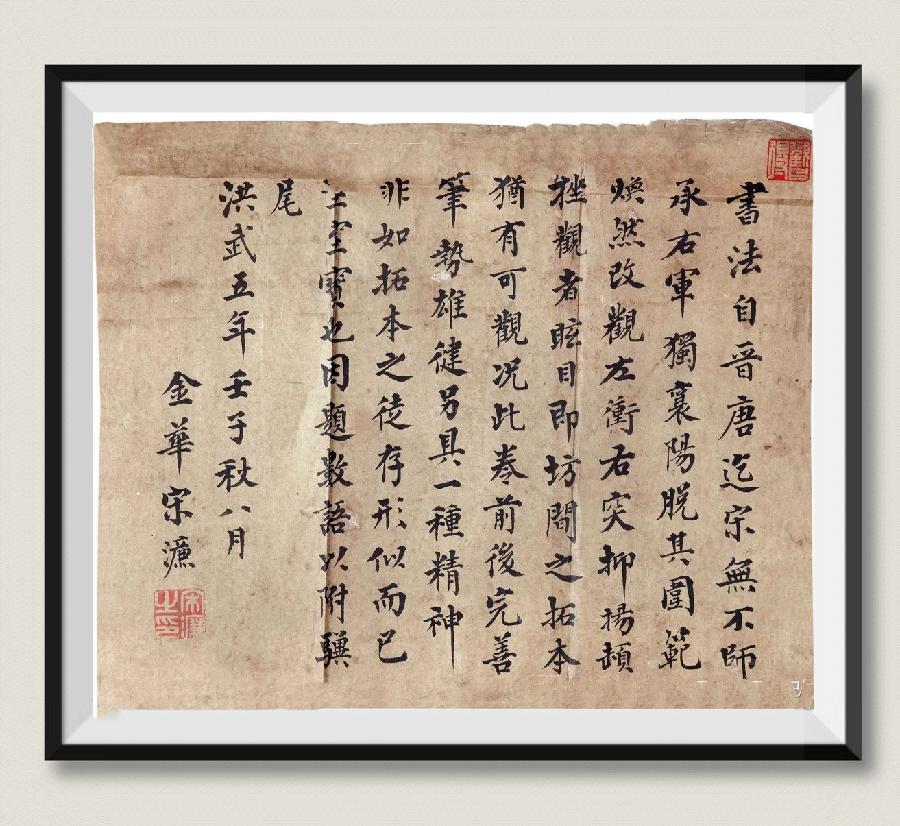 書法自晋唐迄宋無不師
承右軍獨襄陽脱其圍範
焕然改觀左衝右突抑揚頓
挫觀者眩目即坊間之拓本
猶有可觀况此卷前後完善
筆勢雄健另具一種精神
非如拓本之徒存形似而已
室寶也因題數語以附驥
尾
洪武五年壬子秋八月
金華宋濂
宋濂之印